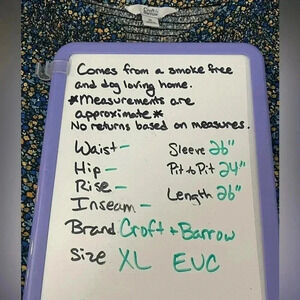 Comes from a smoke free
and dog loving home.
*Measurements are
approximate*
No returns based on measures.
Waist-
Hip-
Rise-
Inseam-
Sleeve 26"
Pit to Pit 24"
Length 26"
Brand Croft + Barrow
Size XL EUC